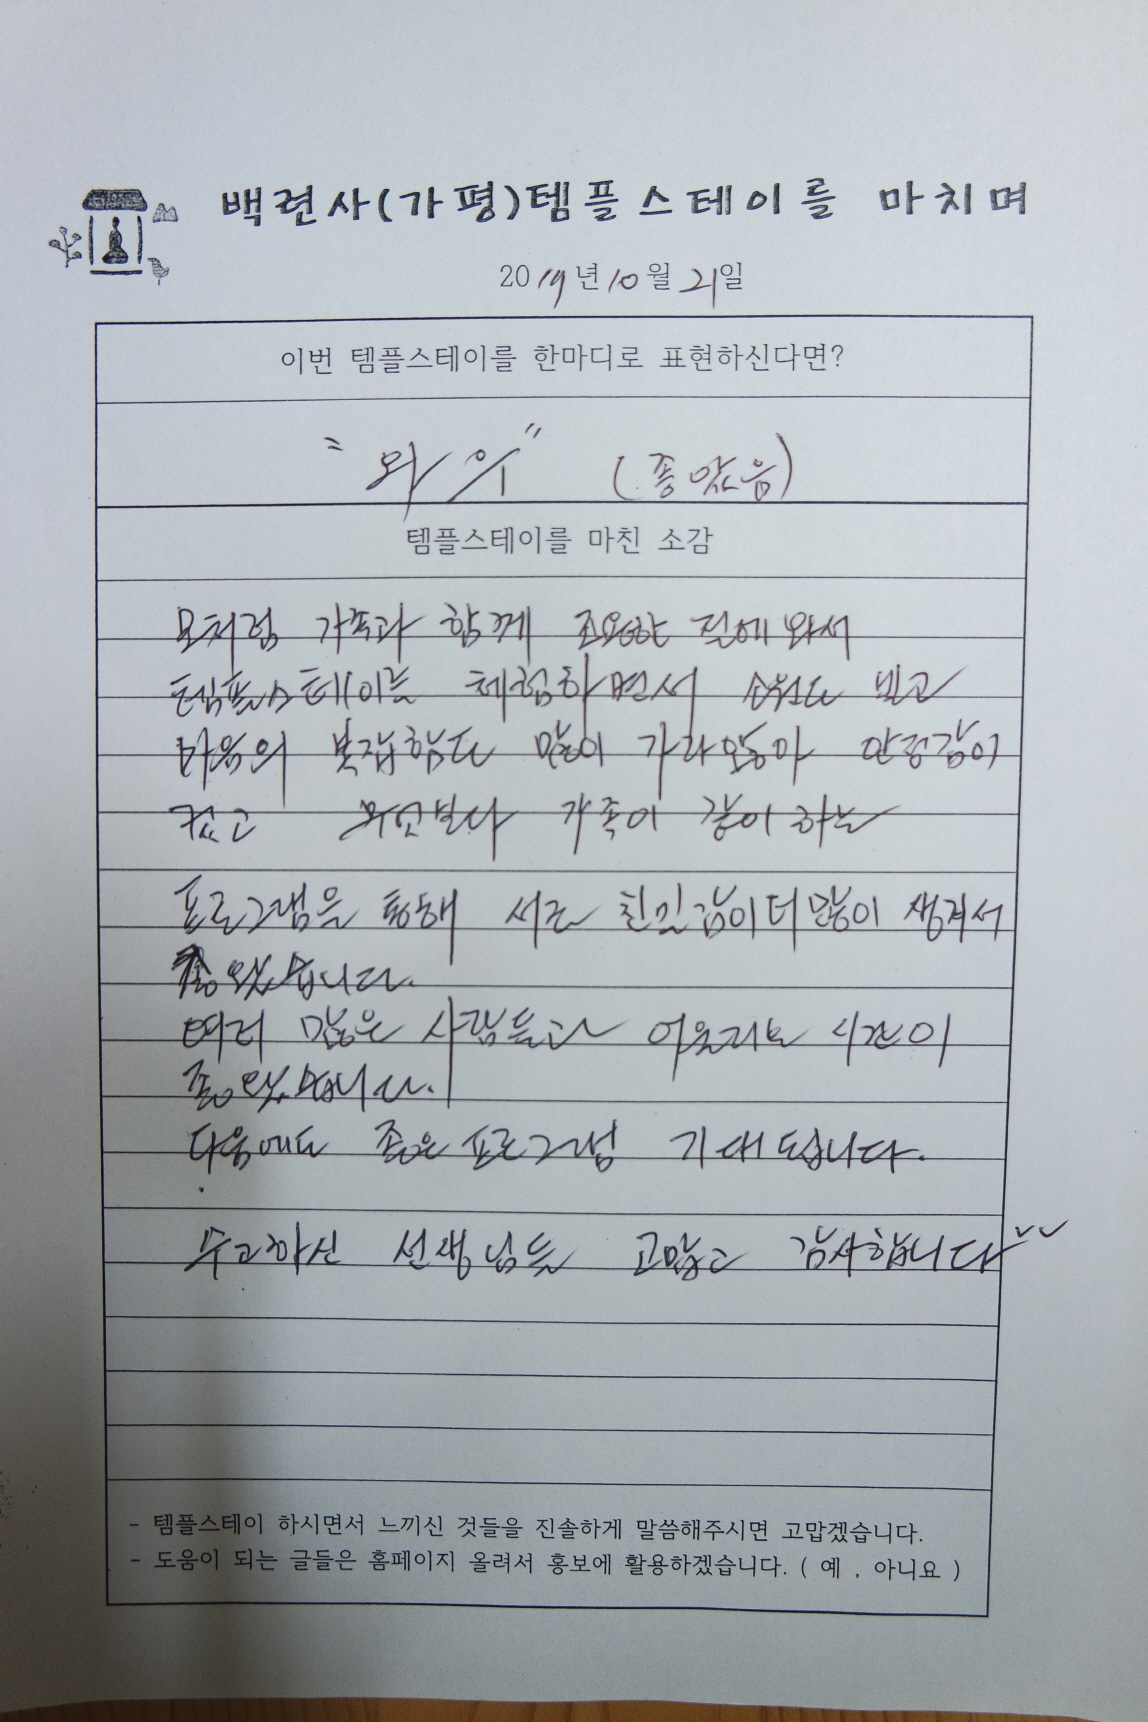 백련사(가평)템플스테이를 마치며
2019년 10월 21일
이번 템플스테이를 한마디로 표현하신다면?
"와 의" (좋았음)
템플스테이를 마친 소감
모처럼 가족과 함께 조용한 절에 와서
템플스테이를 체험하면서 소원도 빌고
마음의 복잡함도 많이 가라앉아 안정감이
컸고 무엇보다 가족이 같이 하는
프로그램을 통해 서로 친밀감이 더 많이 생겨서
좋았습니다.
여러 많은 사람들과 어울리는 시간이
좋았습니다.
다음에도 좋은 프로그램 기대 드립니다.
수고하신 선생님들 고맙고 감사합니다
- 템플스테이 하시면서 느끼신 것들을 진솔하게 말씀해주시면 고맙겠습니다.
- 도움이 되는 글들은 홈페이지 올려서 홍보에 활용하겠습니다. ( 예 , 아니요 )